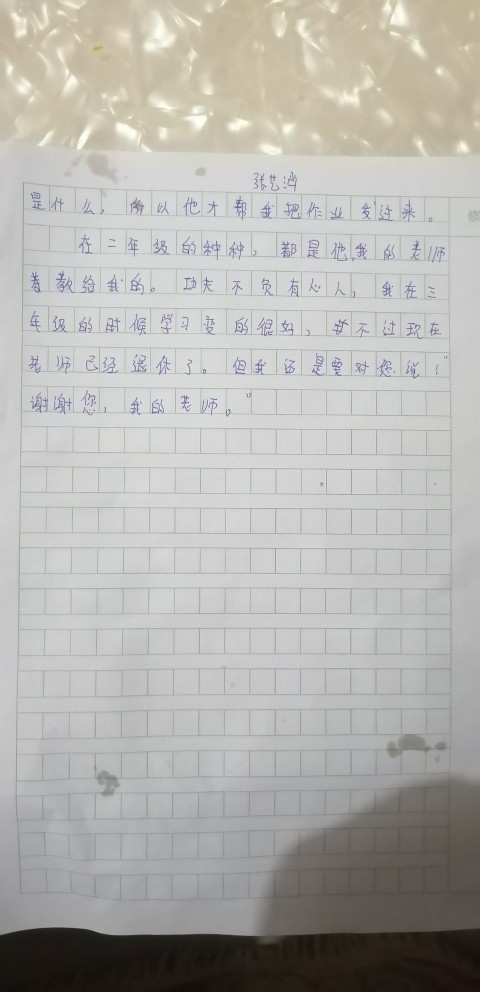 张艺
是什么，所以他才帮我把作业发过来。
在二年级的种种，都是他,我的老师
着教给我的。功夫不负有心人，我在三
年级的时候学习变的很好，不过现在
老师已经退休了。但我还是要对您说！“
谢谢您，我的老师。”